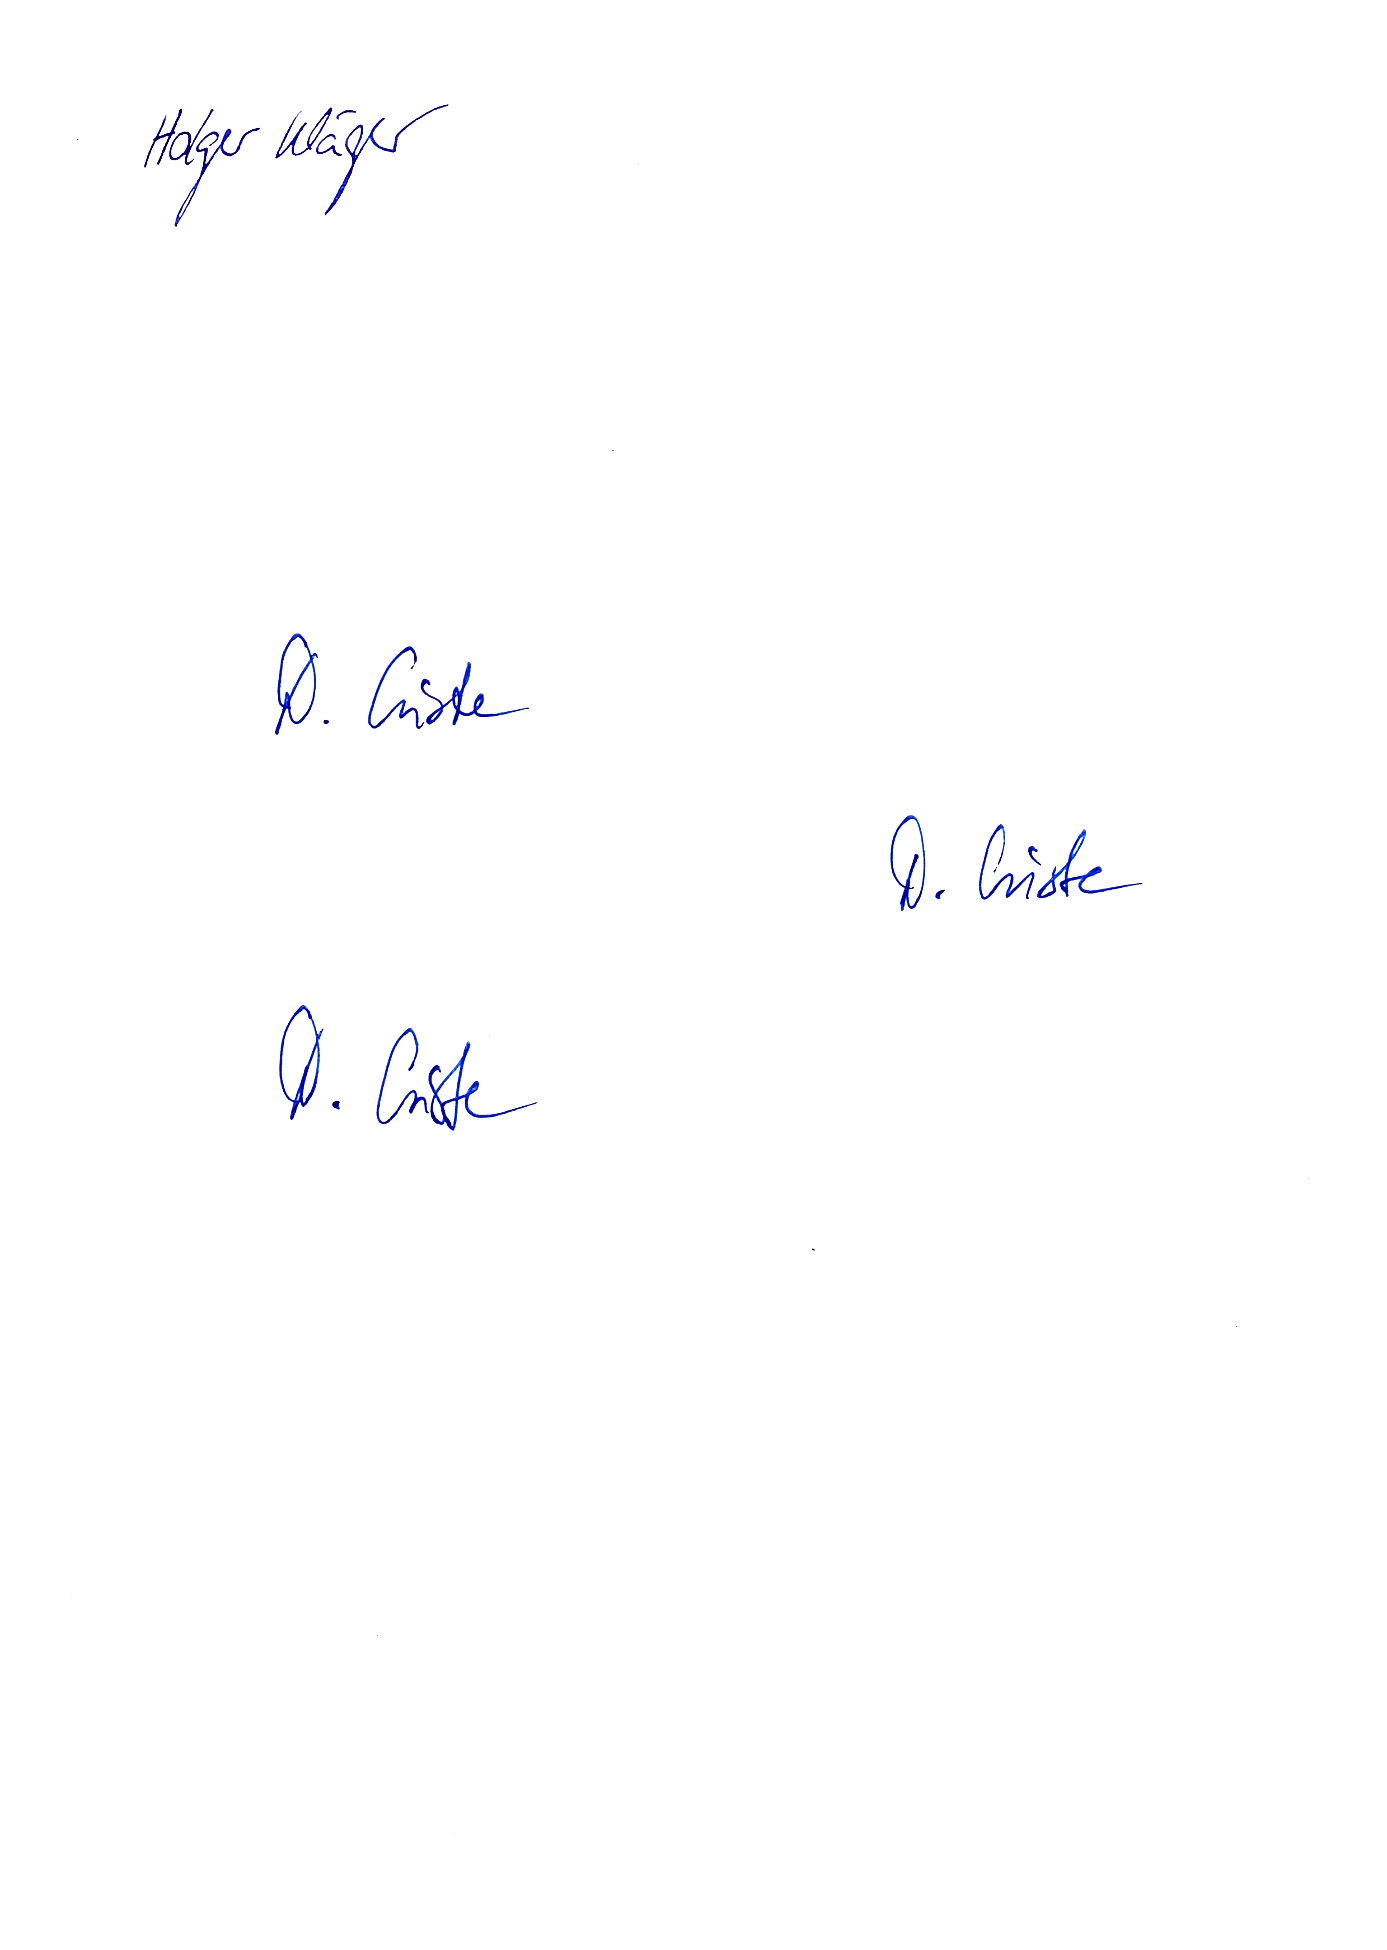 Holger Kläger
D. Criste
D. Criste
D. Criste